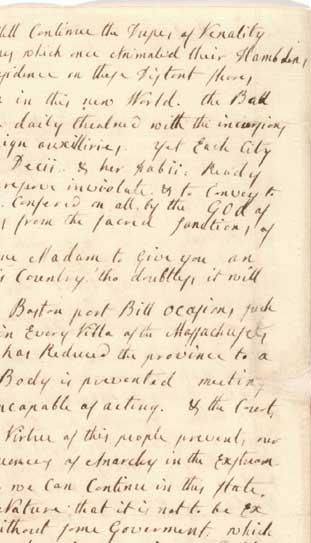 still Continue the Dupes of Venality
which once Animated their Hambdens
residence on these Distant shores
in this new World. the Ball
daily threatned with the incursions
foreign auxilliries. yet Each City
Decii. & her Fabii. Ready
preserve inviolate & to Convey to
Confered on all, by the GOD of
from the sacred sanctions of
me Madam to give you an
Country. tho doubtless it will
Boston port Bill Ocasions such
in Every Villa of the Massachusets
has Reduced the province to a
Body is prevented meeting
incapable of acting. & the Court
Virtue of this people prevents our
of Anarchy in the Extream
we Can Continue in this state.
Nature that it is not to be Ex
without some Goverment. which